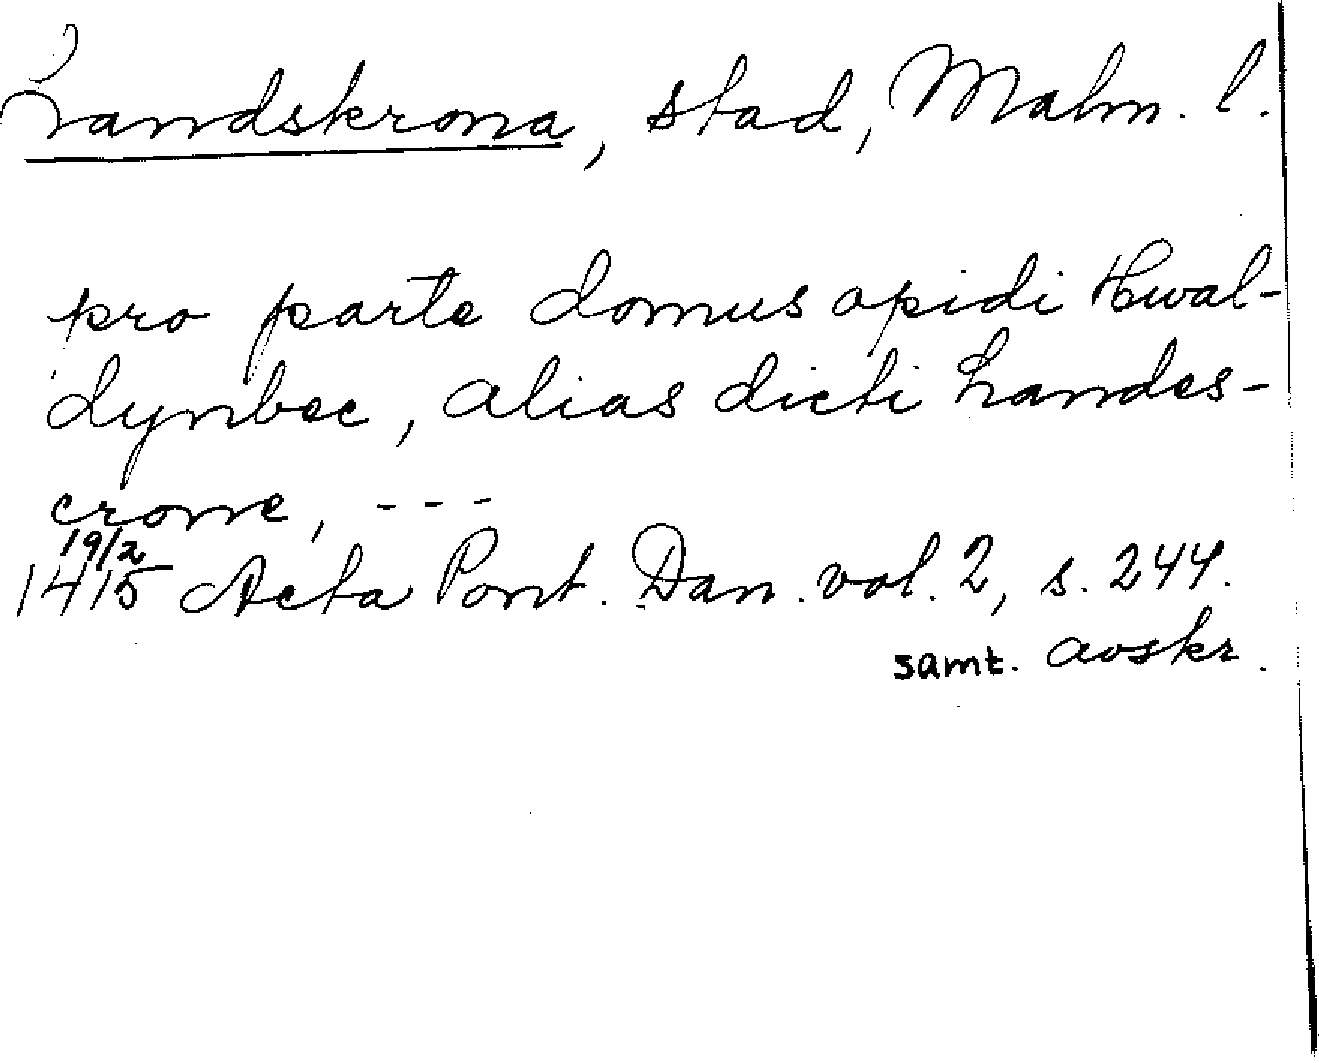 Landskrona, stad, Malm. l.
pro parte domus opidi Hwal-
dynbec, alias dicti Landes-
crone, ---
19/2
1415 Acta Pont. Dan. vol. 2, s. 244.
samt. avskr.